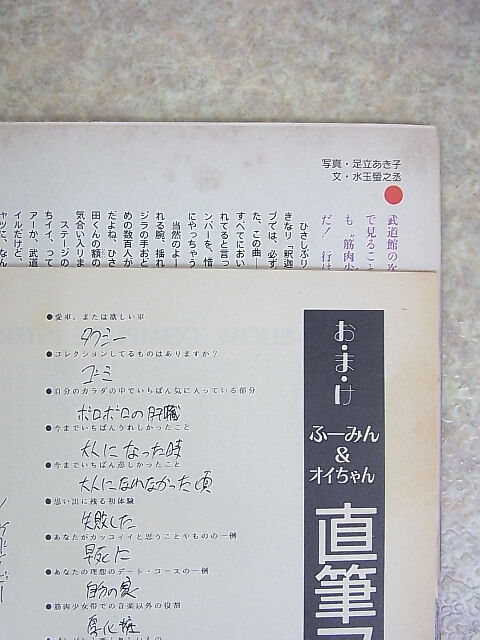 写真・足立あき子
文・水玉螢之丞
武道館の次
で見ること
も〝筋肉少
だ！ 行け
ひさしぶり
きなり『釈迦
ブでは、必ず
た、この曲―
すべてにおい
れてると言っ
ンバーを、惜
にやっちゃう
当然のよー
れる腕、揺れ
ジラの手おど
めの数百人が
だよね、ひさ
田くんの額の
気合い入りま
ステージの
ちイイ、って
アーか、武道
イルだけど、
ャツに、なん
お・ま・け
ふーみん
&
オイちゃん
直筆
●愛車、または欲しい車
タクシー
●コレクションしてるものはありますか？
ゴミ
●自分のカラダの中でいちばん気に入っている部分
ボロボロの肝臓
●今までいちばんうれしかったこと
大人になった時
●今までいちばん悲しかったこと
大人になれなかった頃
●思い出に残る初体験
失敗した
●あなたがカッコイイと思うことやものの一例
早死に
●あなたの理想のデート・コースの一例
自分の家
●筋肉少女帯での音楽以外の役割
厚化粧